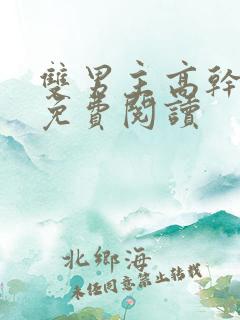 雙男主高幹
免費閱讀
北鄉海
未经同意禁止转载